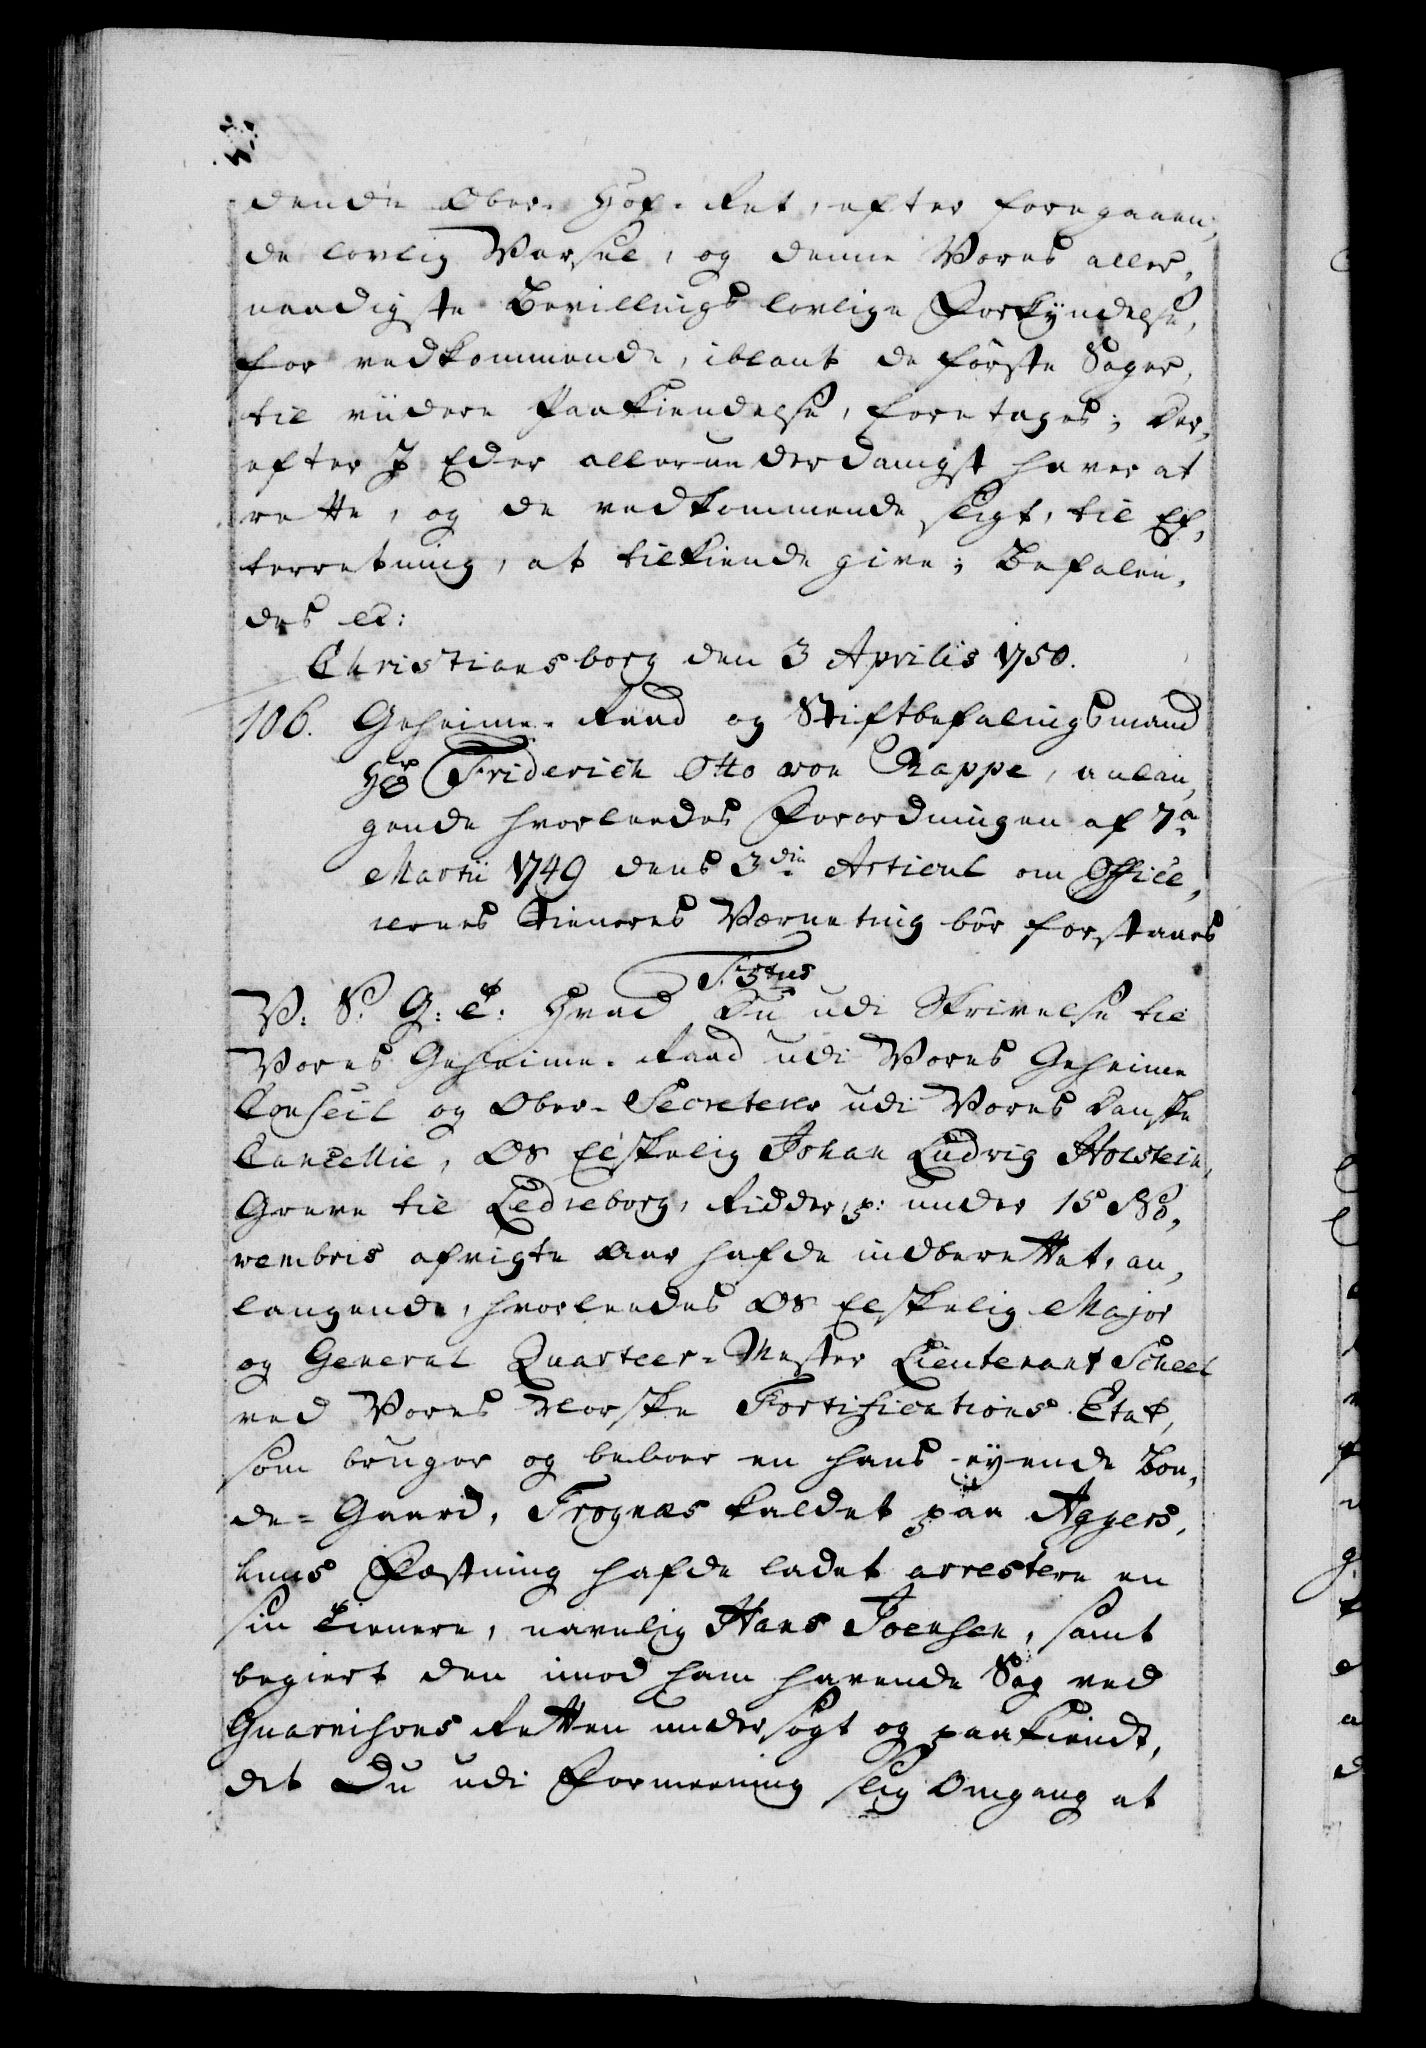 dende Ober-Hof-Ret, efter foregaaen,
de lovlig Varsel, og denne Vores aller,
naadigste Bevillings lovlige Forkyndelse,
for vedkommende, iblant de første Sager,
til viidere Paakiendelse, foretages; Der,
efter I Eder allerunderdanigst haver at
rette, og de vedkommende sligt, til Ef,
terretning, at tilkiende give; Befalen,
des etc:
Christiansborg den 3 Aprilis 1750.
106. Geheime-Raad og Stiftbefalingsmand
Hr Friderich Otto von Rappe, anlan,
gende hvorleedes Forordningen af 7de
Martii 1749 dens 3die Articul om Office,
rernes Tieneres Værneting bør forstaaes
F: 5tus
V: S: G: T: Hvad Du udi Skrivelse til
Vores Geheime-Raad udi Vores Geheime
Conseil og Ober-Secreterer udi Vores Danske
Cancellie, Os Elskelig Johan Ludvig Holstein,
Greve til Ledreborg, Ridder, p: under 15 No,
vembris afvigte Aar hafde indberettet, an,
langende, hvorleedes Os Elskelig Major
og General Quarteer-Mester Lieutenant Scheel
ved Vores Norske Fortifications Etat,
som bruger og beboer en hans eyende Bon,
de-Gaard, Frognæs kaldet paa Aggers,
huus Fæstning hafde ladet arrestere en
sin Tienere, navnlig Hans Joensen, samt
begiert den imod ham havende Sag ved
Guarnisons Retten undersøgt og paakiendt,
det Du udi Formeening slig Omgang at